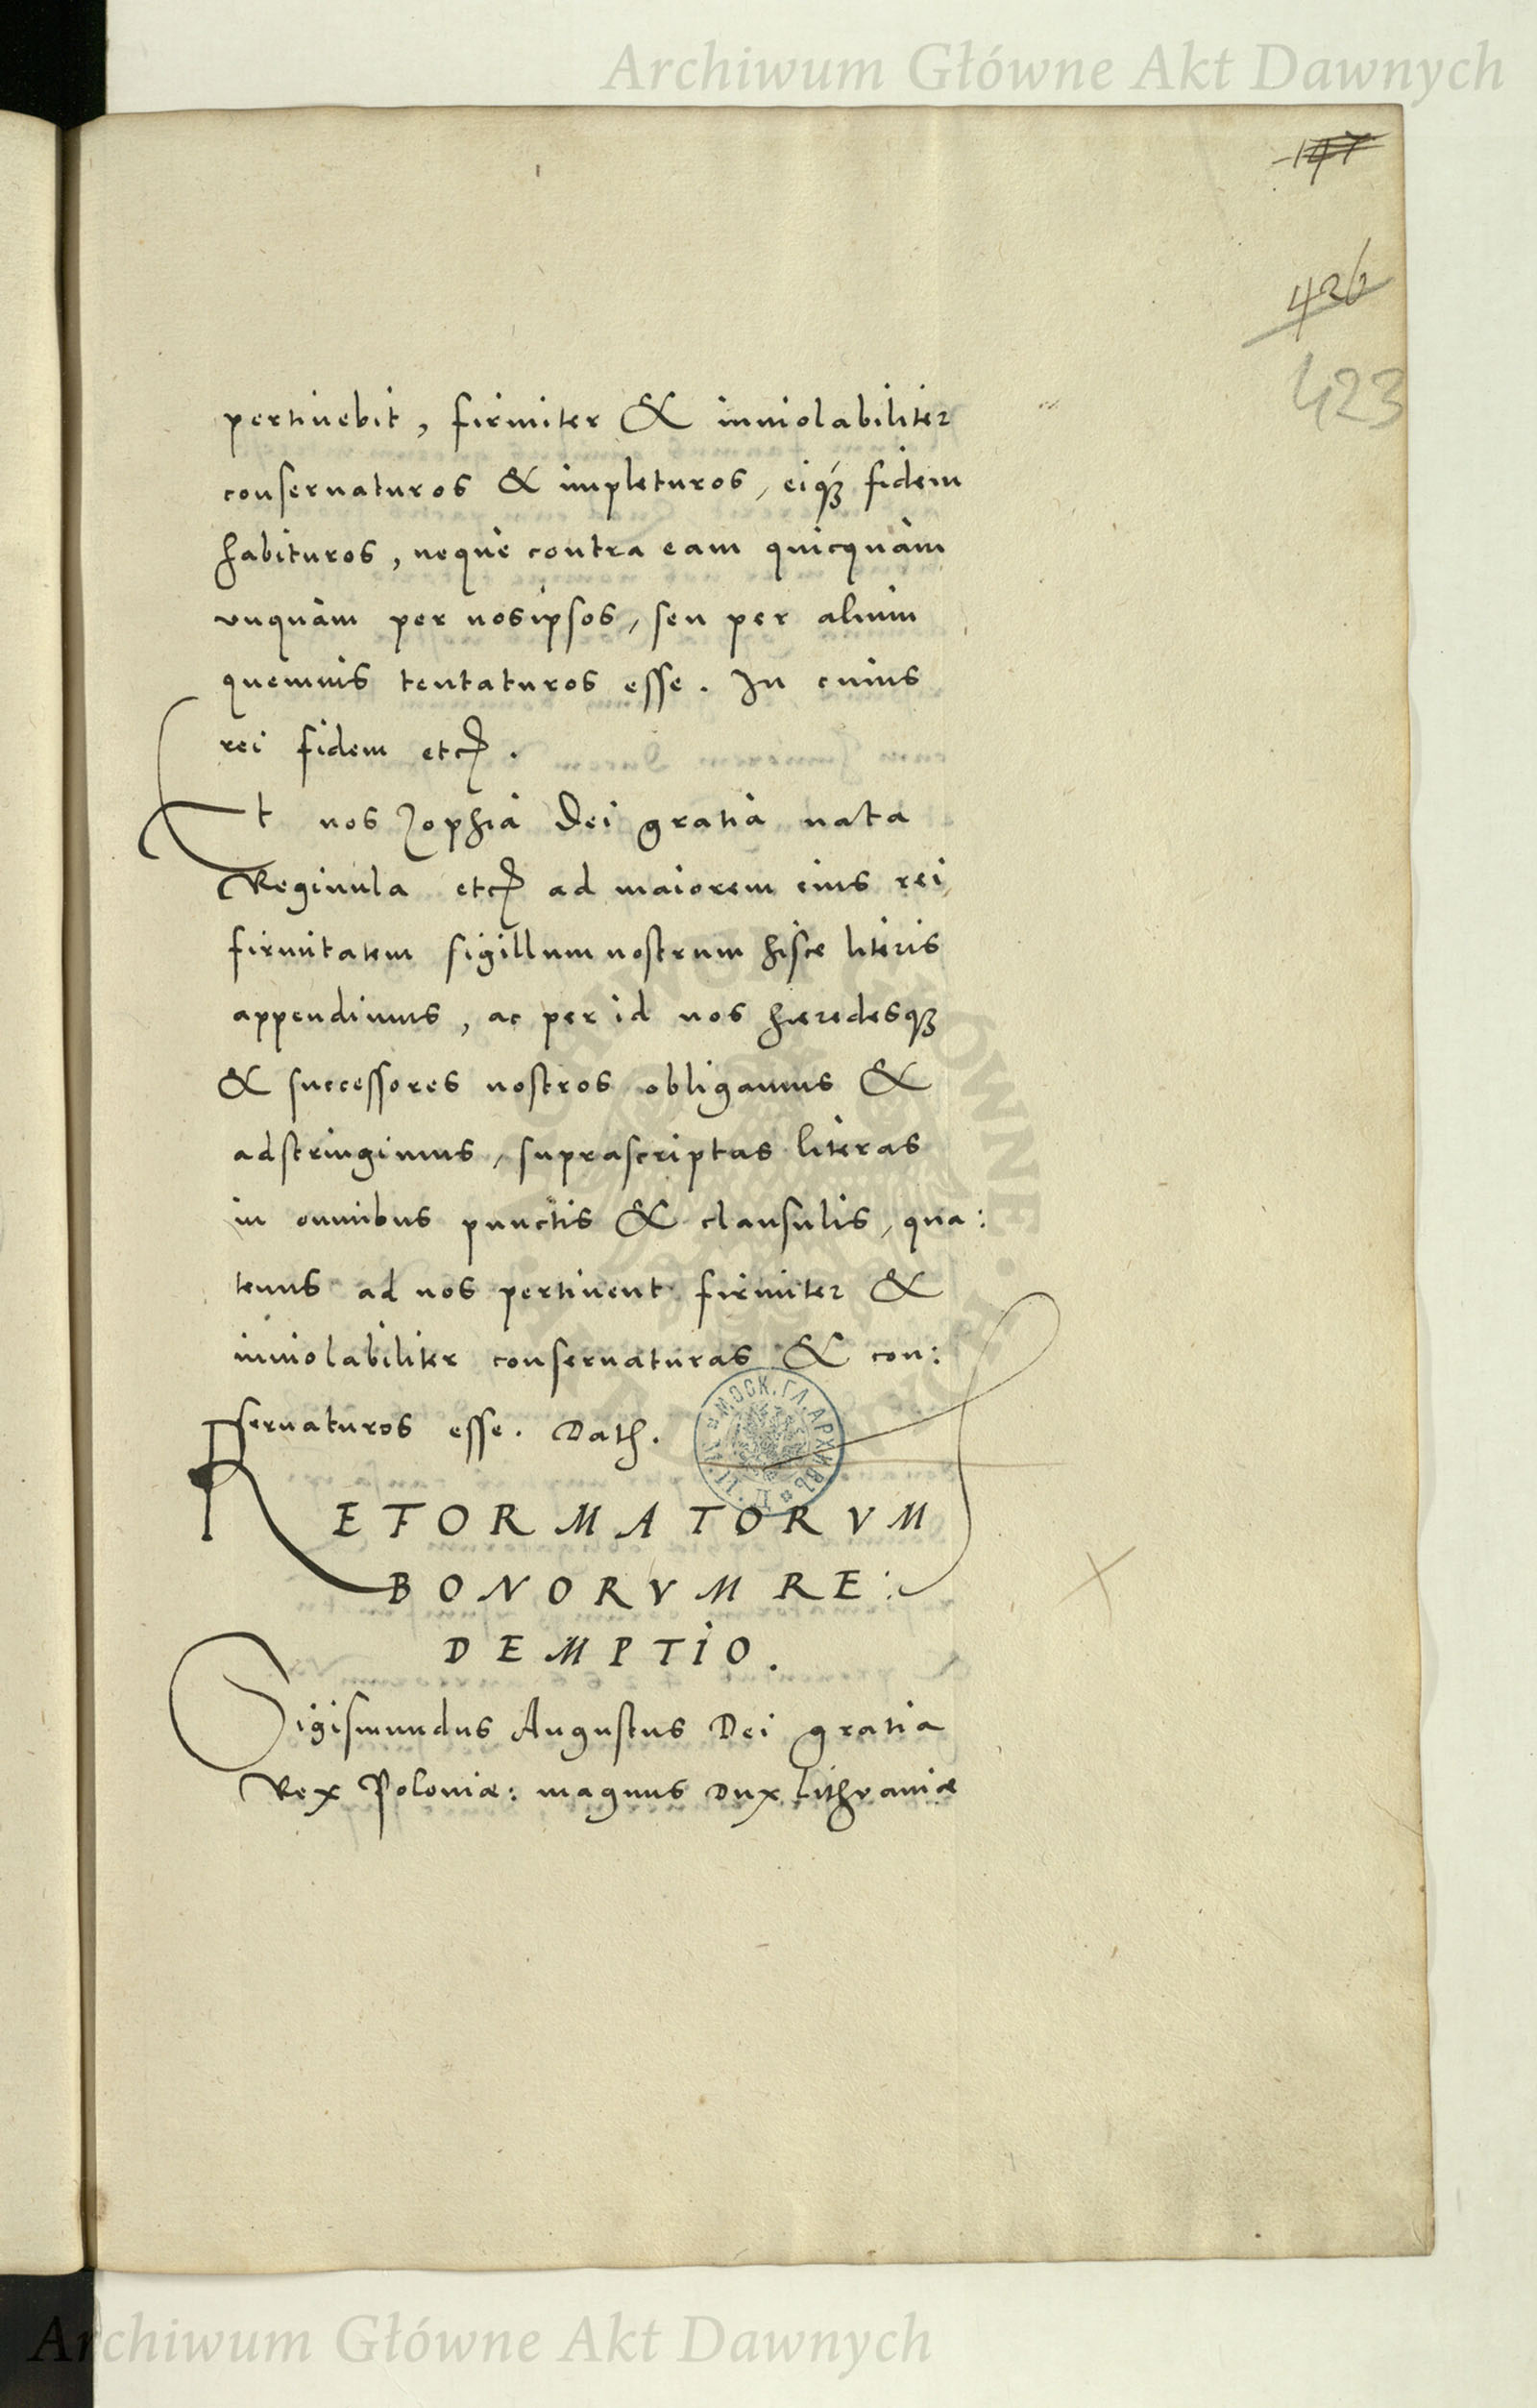 Archiwum Główne Akt Dawnych
147
426
423
pertinebit, firmiter & inuiolabiliter
conseruaturos & impleturos, eiq; fidem
habituros, neque contra eam quicquam
vnquam per nosipsos, seu per alium
quemuis tentaturos esse. In cuius
rei fidem etc.
Et nos Zophia Dei gratia nata
Reginula etc ad maiorem eius rei
firmitatem sigillum nostrum hisce literis
appendimus, ac per id nos hæredesq;
& successores nostros obligamus &
adstringimus, suprascriptas literas
in omnibus punctis & clausulis, qua:
tenus ad nos pertinent firmiter &
inuiolabiliter conseruaturas & con:
seruaturos esse. Dath.
МОСК. ГЛ. АРХИВЪ
REFORMATORVM
BONORVM RE:
DEMPTIO.
Sigismundus Augustus Dei gratia
Rex Poloniæ: magnus Dux Lithvaniæ
Archiwum Główne Akt Dawnych